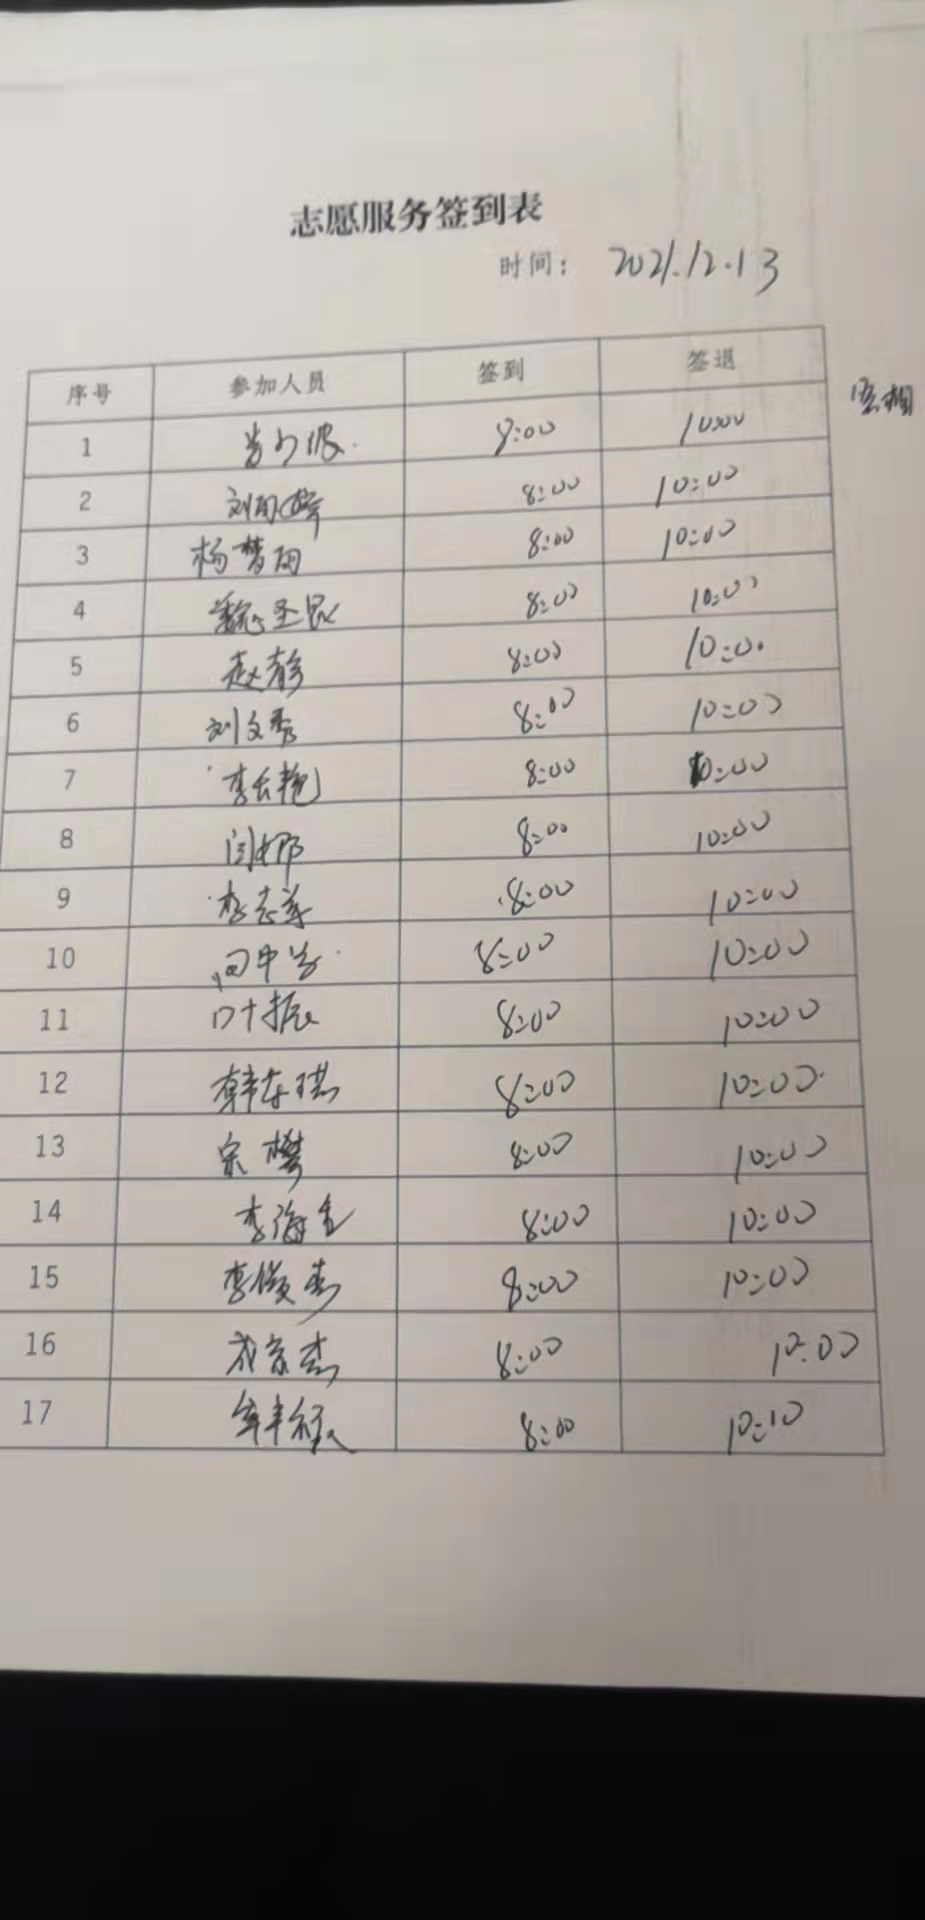 志愿服务签到表
时间： 2021.12.13
序号 参加人员 签到 签退
1 8:00 10:00
2 8:00 10:00
3 杨梦雨 8:00 10:00
4 魏圣民 8:00 10:00
5 赵静 8:00 10:00
6 刘文秀 8:00 10:00
7 李长艳 8:00 10:00
8 闫娜 8:00 10:00
9 8:00 10:00
10 8:00 10:00
11 叶振 8:00 10:00
12 韩东琪 8:00 10:00
13 宋樊 8:00 10:00
14 李海 8:00 10:00
15 李俊杰 8:00 10:00
16 8:00 10:00
17 8:00 10:10